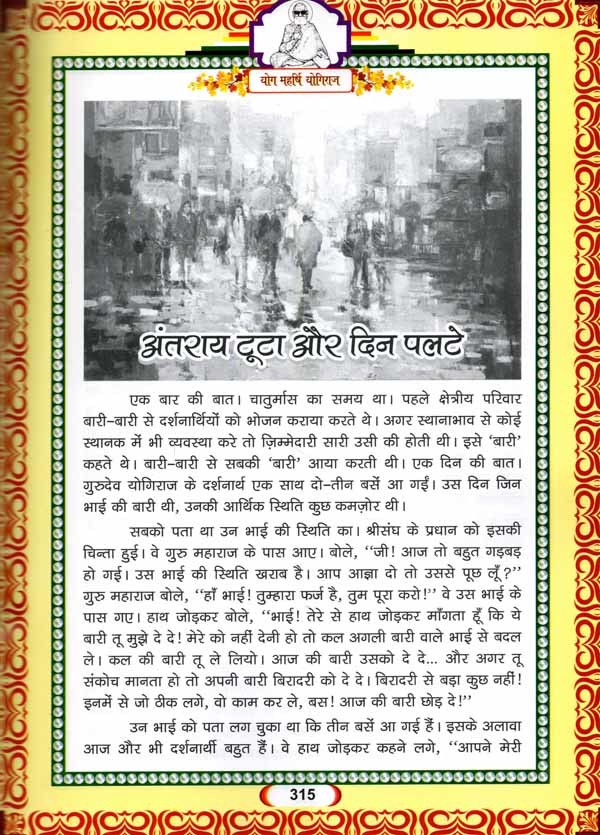 योग महर्षि योगिराज
अंतराय टूटा और दिन पलटे
एक बार की बात। चातुर्मास का समय था। पहले क्षेत्रीय परिवार
बारी-बारी से दर्शनार्थियों को भोजन कराया करते थे। अगर स्थानाभाव से कोई
स्थानक में भी व्यवस्था करे तो ज़िम्मेदारी सारी उसी की होती थी। इसे ‘बारी’
कहते थे। बारी-बारी से सबकी ‘बारी’ आया करती थी। एक दिन की बात।
गुरुदेव योगिराज के दर्शनार्थ एक साथ दो-तीन बसें आ गईं। उस दिन जिन
भाई की बारी थी, उनकी आर्थिक स्थिति कुछ कमज़ोर थी।
सबको पता था उन भाई की स्थिति का। श्रीसंघ के प्रधान को इसकी
चिन्ता हुई। वे गुरु महाराज के पास आए। बोले, ‘‘जी! आज तो बहुत गड़बड़
हो गई। उस भाई की स्थिति खराब है। आप आज्ञा दो तो उससे पूछ लूँ?’’
गुरु महाराज बोले, ‘‘हाँ भाई! तुम्हारा फर्ज है, तुम पूरा करो!’’ वे उस भाई के
पास गए। हाथ जोड़कर बोले, ‘‘भाई! तेरे से हाथ जोड़कर माँगता हूँ कि ये
बारी तू मुझे दे दे! मेरे को नहीं देनी हो तो कल अगली बारी वाले भाई से बदल
ले। कल की बारी तू ले लियो। आज की बारी उसको दे दे... और अगर तू
संकोच मानता हो तो अपनी बारी बिरादरी को दे दे। बिरादरी से बड़ा कुछ नहीं!
इनमें से जो ठीक लगे, वो काम कर ले, बस! आज की बारी छोड़ दे!’’
उन भाई को पता लग चुका था कि तीन बसें आ गई हैं। इसके अलावा
आज और भी दर्शनार्थी बहुत हैं। वे हाथ जोड़कर कहने लगे, ‘‘आपने मेरी
315